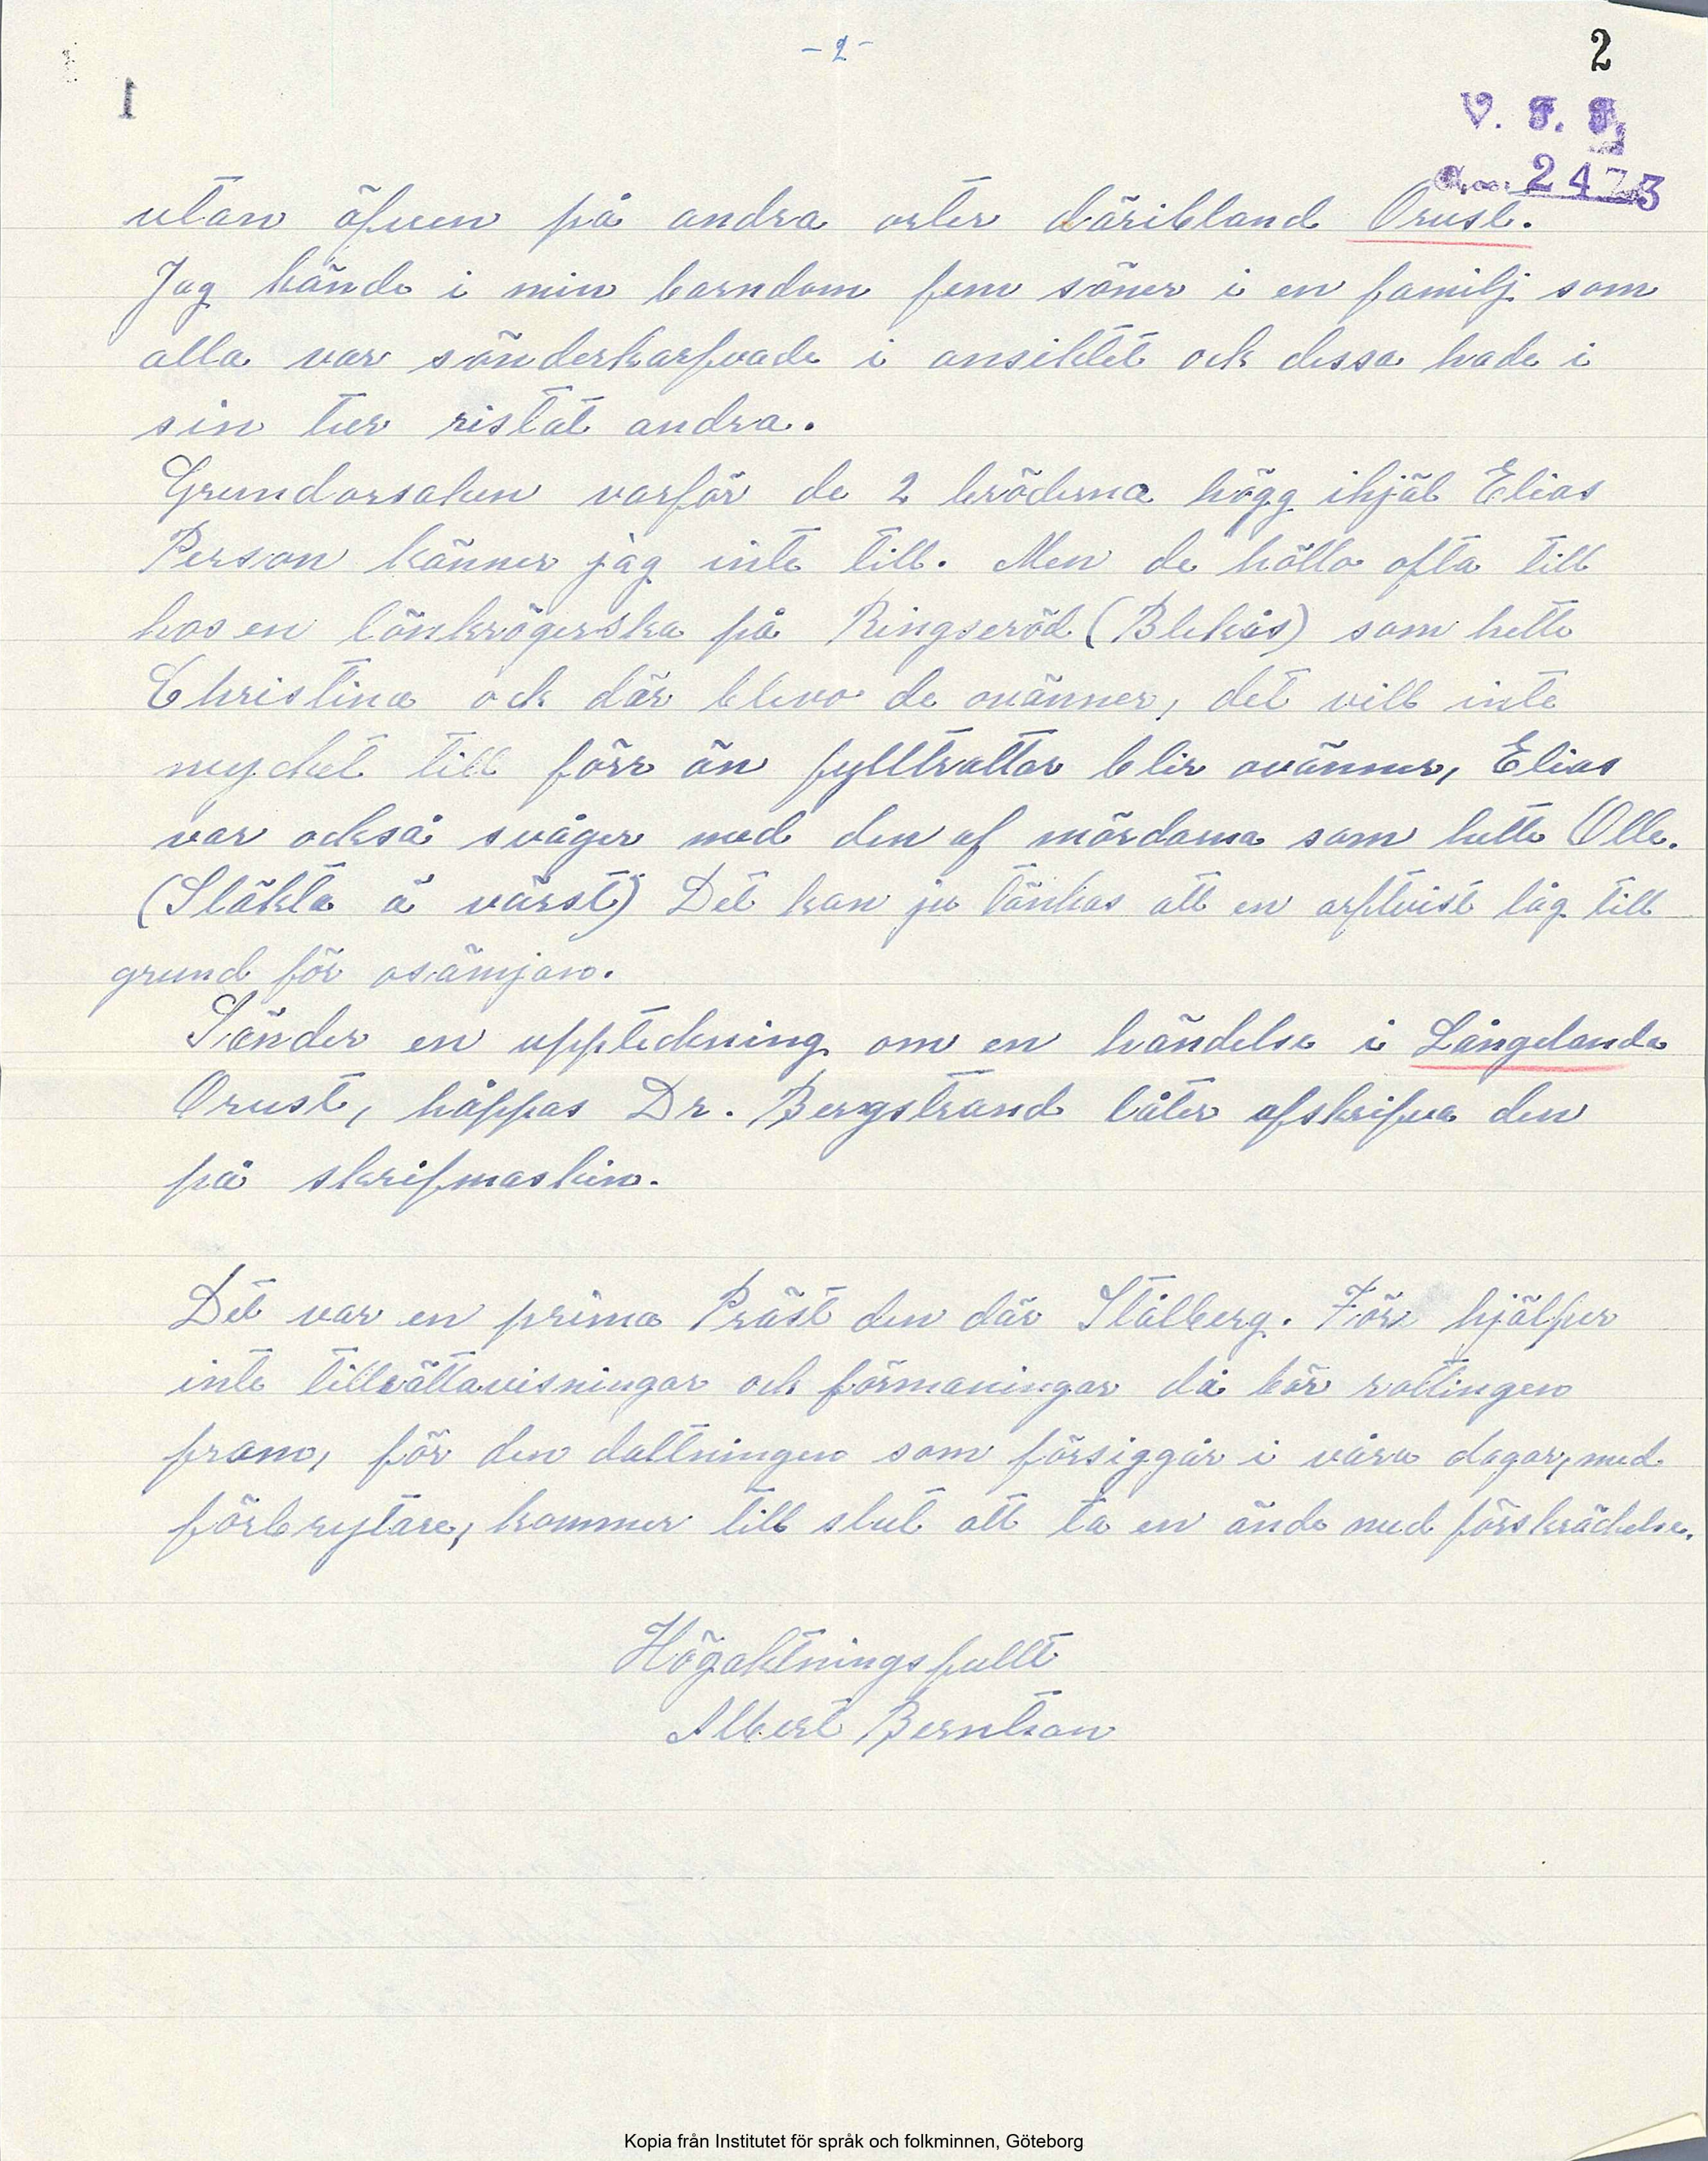 - 2 -
2
1
V. F. F.
Acc. 2473
utan äfven på andra orter däribland Orust.
Jag kände i min barndom fem söner i en familj som
alla var sönderkarfvade i ansiktet och dessa hade i
sin tur ristat andra.
Grundorsaken varför de 2 bröderna högg ihjäl Elias
Person känner jag inte till. Men de höllo ofta till
hos en lönkrögerska på Ringseröd (Blekås) som hette
Christina och där blevo de ovänner, det vill inte
mycket till förr än fylltrattar blir ovänner, Elias
var också svåger med den af mördarna som hette Olle.
(Släkta ä värst) Det kan ju tänkas att en arftvist låg till
grund för osämjan.
Sänder en uppteckning om en händelse i Långelanda
Orust, håppas Dr. Bergstrand låter afskrifva den
på skrifmaskin.
Det var en prima Präst den där Stålberg. För hjälper
inte tillrättavisningar och förmaningar då bör rottingen
fram, för den daltningen som försiggår i våra dagar, med
förbrytare, kommer till slut att ta en ände med förskräckelse.
Högaktningsfullt
Albert Berntson
Kopia från Institutet för språk och folkminnen, Göteborg